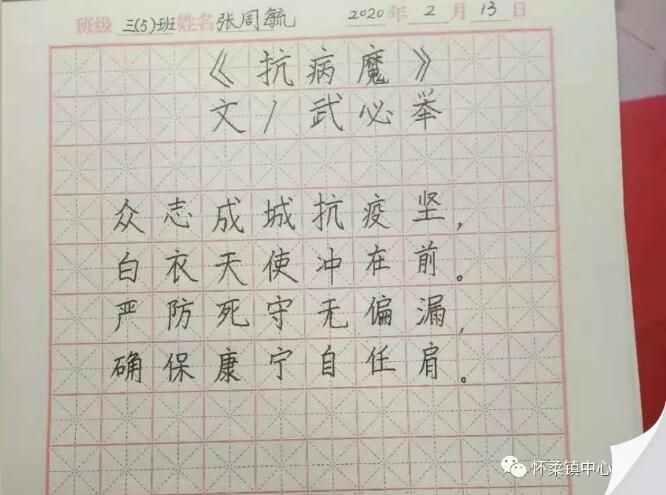 班级 三(5)班 姓名 张周毓 2020年2月13日
《抗病魔》
文/武必举
众志成城抗疫坚，
白衣天使冲在前。
严防死守无偏漏，
确保康宁自任肩。
怀莱镇中心